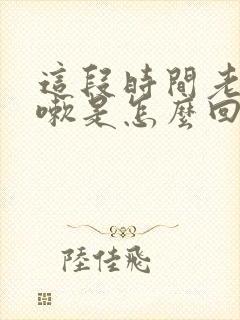 這段時間老
嗽是怎麼回
陸佳飛